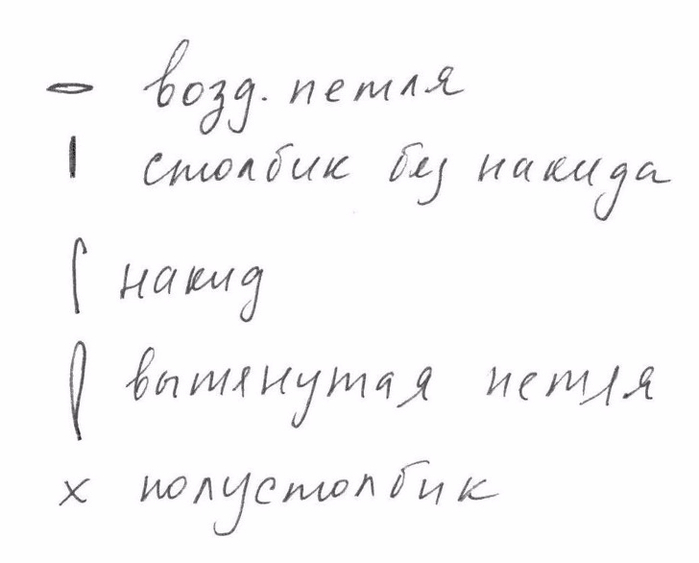 возд. петля
столбик без накида
накид
вытянутая петля
x полустолбик